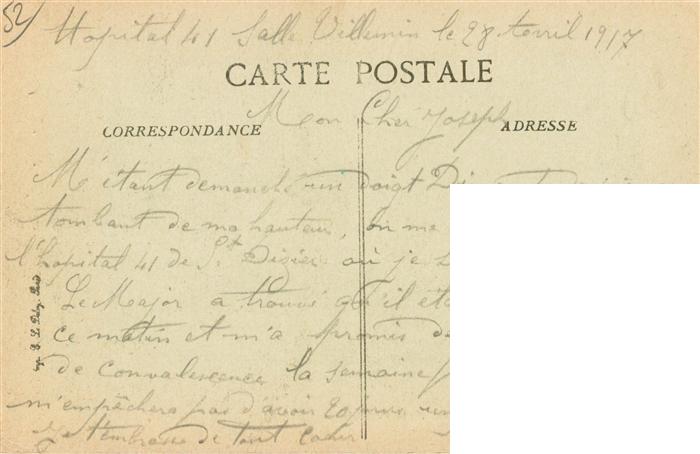 52
Hopital 41 Salle Villemin le 28 Avril 1917
CARTE POSTALE
Mon Cher Joseph
CORRESPONDANCE
ADRESSE
M'étant demanché un doigt
tombant de ma hauteur, on me
l'hopital 41 de St Dizier où je
Le Major a trouvé qu'il
ce matin et m'a promis
de convalescence la semaine
m'empêchera pas d'avoir
Je t'embrasse de tout coeur